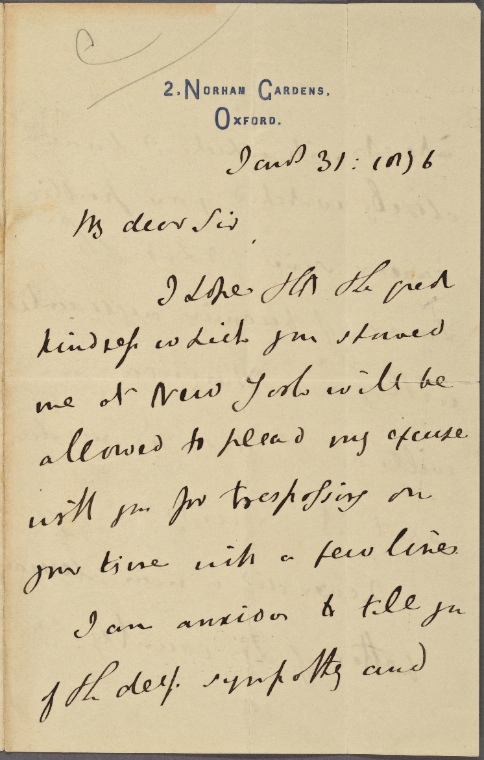 2, NORHAM GARDENS,
OXFORD.
Jan 31: 1896
My dear Sir,
I hope that the great
kindness which you showed
me at New York will be
allowed to plead my excuse
with you for trespassing on
your time with a few lines
I am anxious to tell you
of the deep sympathy and